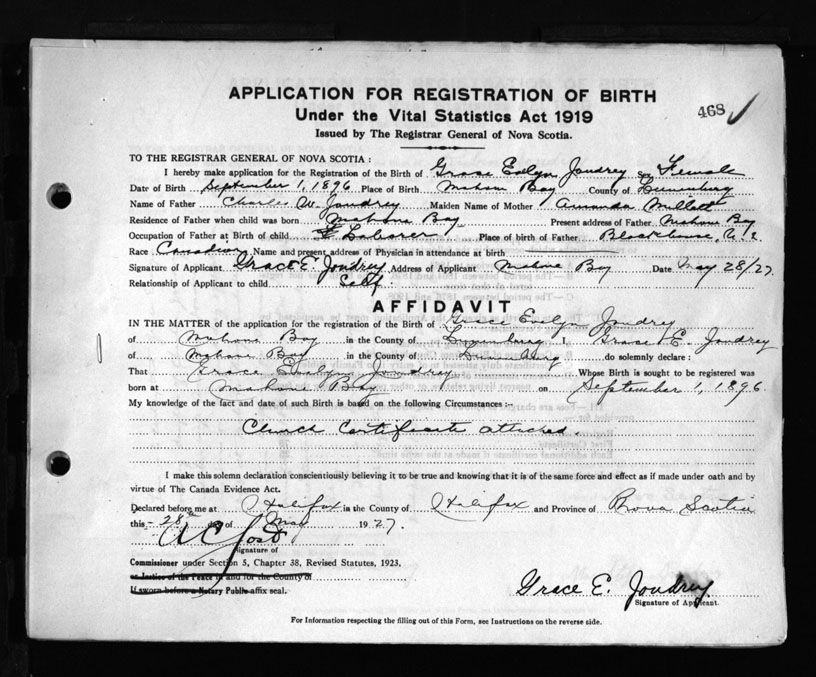 468 ✓
APPLICATION FOR REGISTRATION OF BIRTH
Under the Vital Statistics Act 1919
Issued by The Registrar General of Nova Scotia.
TO THE REGISTRAR GENERAL OF NOVA SCOTIA :
I hereby make application for the Registration of the Birth of Grace Evlyn Joudrey Female
Date of Birth September 1, 1896 Place of Birth Mahone Bay County of Lunenburg
Name of Father Charles W. Joudrey Maiden Name of Mother Amanda Millett
Residence of Father when child was born Mahone Bay Present address of Father Mahone Bay
Occupation of Father at Birth of child Laborer Place of birth of Father Blockhouse,
Race Canadian Name and present address of Physician in attendance at birth
Signature of Applicant Grace E. Joudrey Address of Applicant Mahone Bay Date May 28/27.
Relationship of Applicant to child Self.
AFFIDAVIT
IN THE MATTER of the application for the registration of the Birth of Grace Evelyn Joudrey
of Mahone Bay in the County of Lunenburg I, Grace E. Joudrey
of Mahone Bay in the County of Lunenburg do solemnly declare :
That Grace Evelyn Joudrey Whose Birth is sought to be registered was
born at Mahone Bay on September 1, 1896
My knowledge of the fact and date of such Birth is based on the following Circumstances :--
Church Certificate attached.
I make this solemn declaration conscientiously believing it to be true and knowing that it is of the same force and effect as if made under oath and by
virtue of The Canada Evidence Act.
Declared before me at Halifax in the County of Halifax and Province of Nova Scotia
this 28th day of May 1927.
A C Jost
Signature of
Commissioner under Section 5, Chapter 38, Revised Statutes, 1923.
or Justice of the Peace in and for the County of
If sworn before a Notary Public affix seal.
Grace E. Joudrey
Signature of Applicant.
For Information respecting the filling out of this Form, see Instructions on the reverse side.